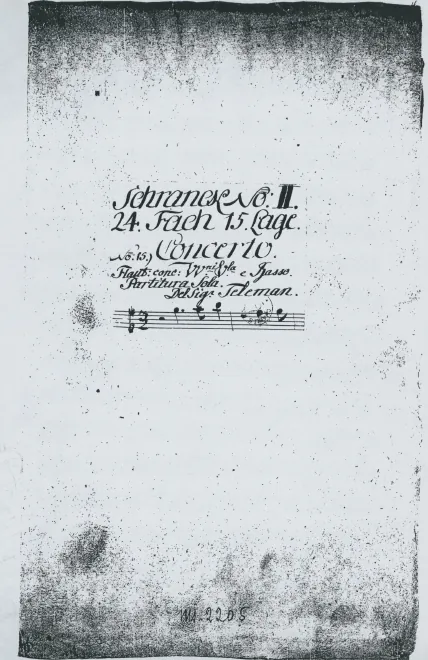 Schranck No: II.
24. Fach 15. Lage.
No. 15.) Concerto.
Flaut: conc: VV.ni V.la e Basso.
Partitura Sola.
Del Sig.r Teleman.
M 2205